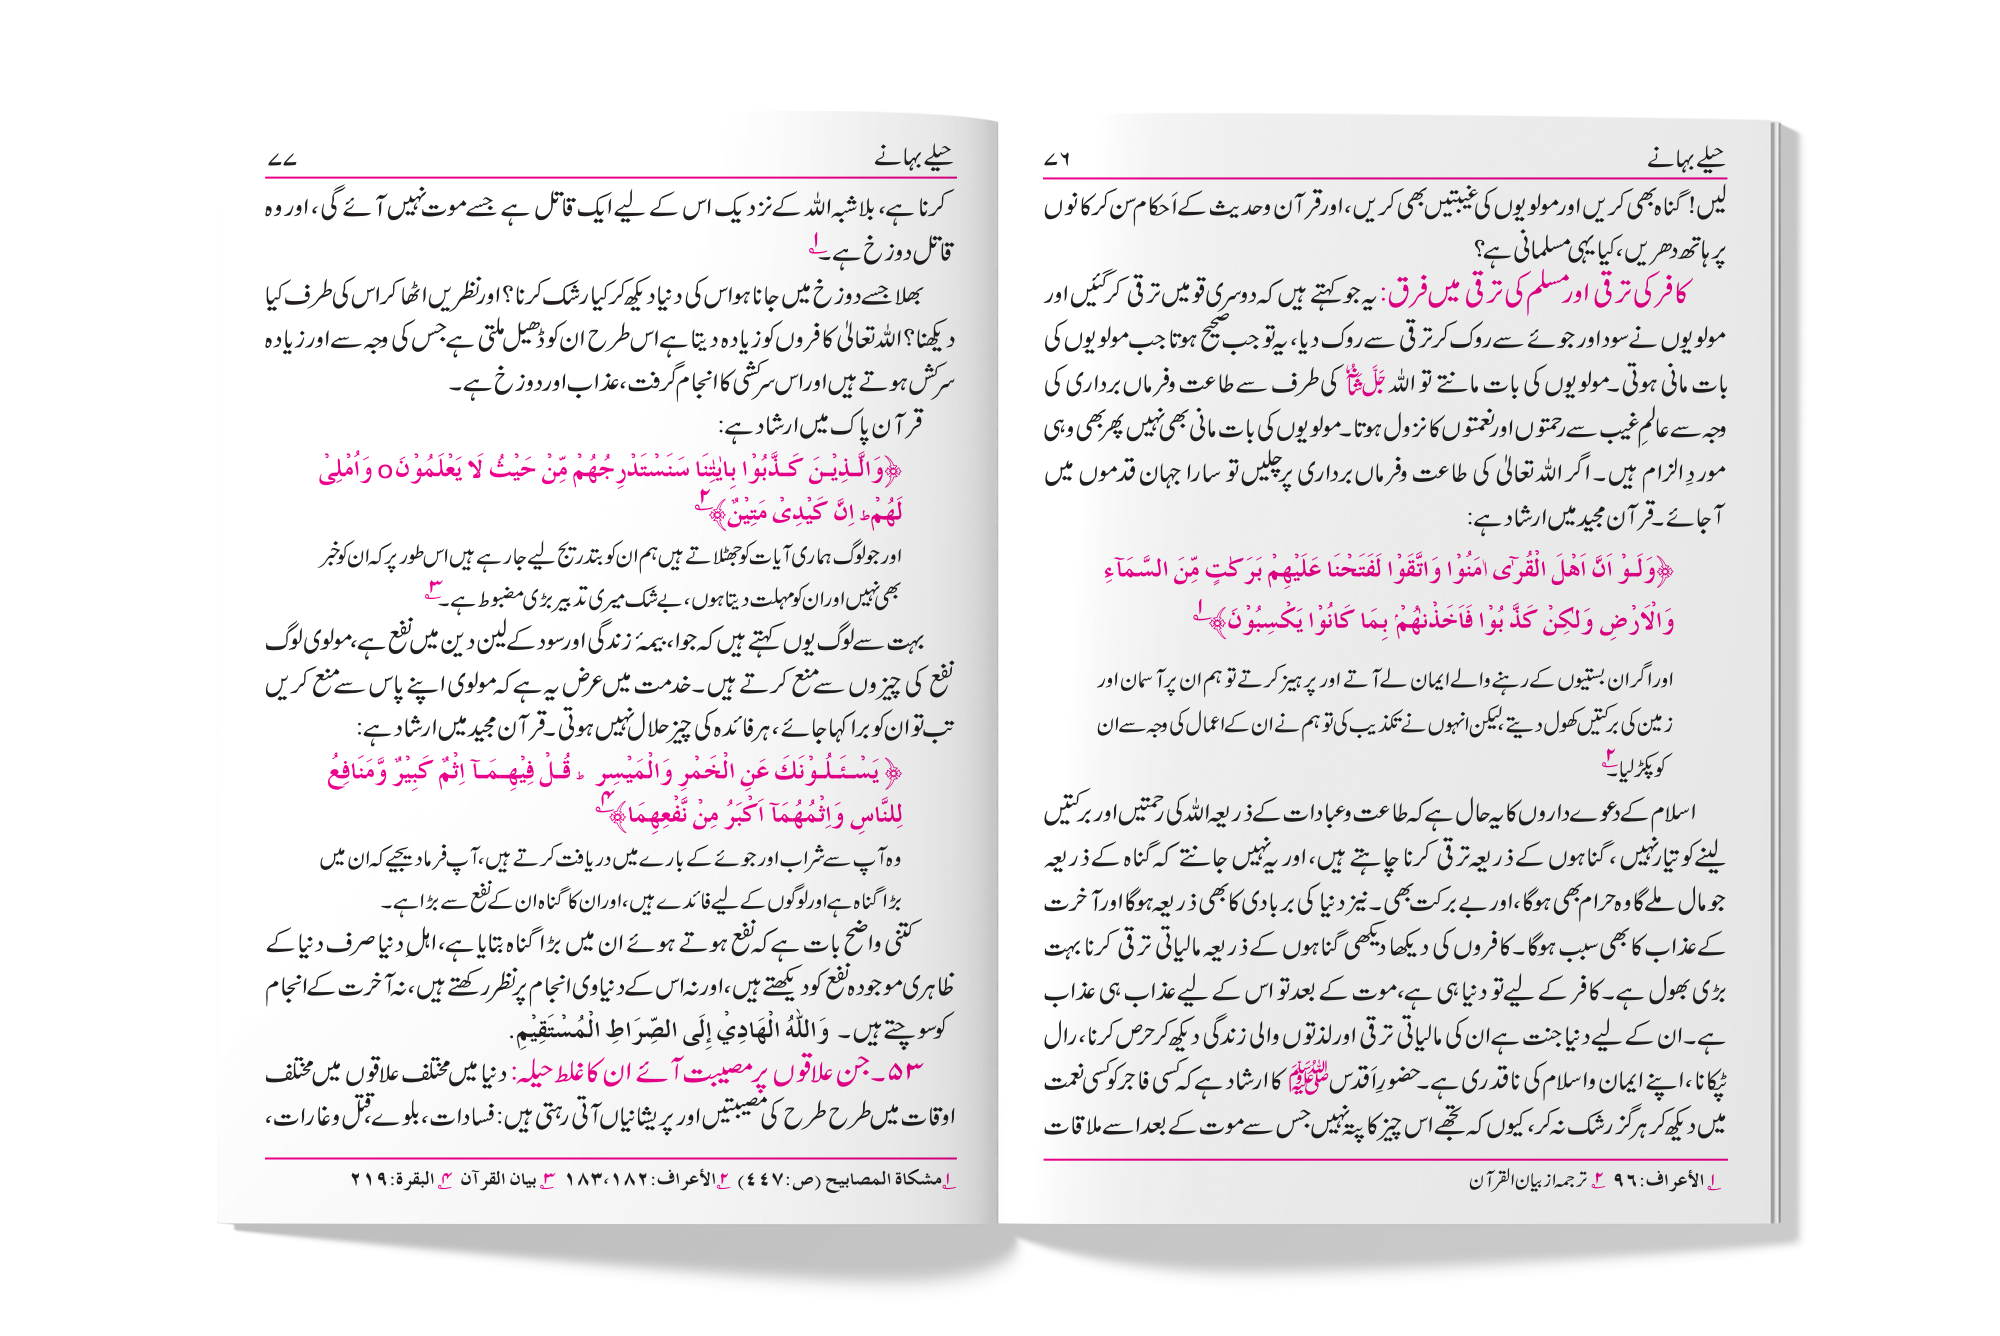 حیلے بہانے ۷۶
لیں! گناہ بھی کریں اور مولویوں کی غیبتیں بھی کریں، اور قرآن وحدیث کے اَحکام سن کر کانوں
پر ہاتھ دھریں، کیا یہی مسلمانی ہے؟
کافر کی ترقی اور مسلم کی ترقی میں فرق: یہ جو کہتے ہیں کہ دوسری قومیں ترقی کر گئیں اور
مولویوں نے سود اور جوئے سے روک کر ترقی سے روک دیا، یہ تو جب صحیح ہوتا جب مولویوں کی
بات مانی ہوتی۔ مولویوں کی بات مانتے تو اللہ جَلَّ شَانُہٗ کی طرف سے طاعت وفرماں برداری کی
وجہ سے عالمِ غیب سے رحمتوں اور نعمتوں کا نزول ہوتا۔ مولویوں کی بات مانی بھی نہیں پھر بھی وہی
موردِ الزام ہیں۔ اگر اللہ تعالیٰ کی طاعت وفرماں برداری پر چلیں تو سارا جہان قدموں میں
آجائے۔ قرآن مجید میں ارشاد ہے:
﴿وَلَوْ اَنَّ اَهْلَ الْقُرٰٓى اٰمَنُوْا وَاتَّقَوْا لَفَتَحْنَا عَلَيْهِمْ بَرَكٰتٍ مِّنَ السَّمَآءِ
وَالْاَرْضِ وَلٰكِنْ كَذَّبُوْا فَاَخَذْنٰهُمْ بِمَا كَانُوْا يَكْسِبُوْنَ﴾ ۱
اور اگر ان بستیوں کے رہنے والے ایمان لے آتے اور پرہیز کرتے تو ہم ان پر آسمان اور
زمین کی برکتیں کھول دیتے، لیکن انہوں نے تکذیب کی تو ہم نے ان کے اعمال کی وجہ سے ان
کو پکڑ لیا۔ ۲
اسلام کے دعوے داروں کا یہ حال ہے کہ طاعت وعبادات کے ذریعہ اللہ کی رحمتیں اور برکتیں
لینے کو تیار نہیں، گناہوں کے ذریعہ ترقی کرنا چاہتے ہیں، اور یہ نہیں جانتے کہ گناہ کے ذریعہ
جو مال ملے گا وہ حرام بھی ہوگا، اور بے برکت بھی۔ نیز دنیا کی بربادی کا بھی ذریعہ ہوگا اور آخرت
کے عذاب کا بھی سبب ہوگا۔ کافروں کی دیکھا دیکھی گناہوں کے ذریعہ مالیاتی ترقی کرنا بہت
بڑی بھول ہے۔ کافر کے لیے تو دنیا ہی ہے، موت کے بعد تو اس کے لیے عذاب ہی عذاب
ہے۔ ان کے لیے دنیا جنت ہے ان کی مالیاتی ترقی اور لذتوں والی زندگی دیکھ کر حرص کرنا، رال
ٹپکانا، اپنے ایمان واسلام کی ناقدری ہے۔ حضورِ اَقدس ﷺ کا ارشاد ہے کہ کسی فاجر کو کسی نعمت
میں دیکھ کر ہرگز رشک نہ کر، کیوں کہ تجھے اس چیز کا پتہ نہیں جس سے موت کے بعد اسے ملاقات
۱ الأعراف: ۹۶ ۲ ترجمہ از بیان القرآن
حیلے بہانے ۷۷
کرنا ہے، بلاشبہ اللہ کے نزدیک اس کے لیے ایک قاتل ہے جسے موت نہیں آئے گی، اور وہ
قاتل دوزخ ہے۔ ۱
بھلا جسے دوزخ میں جانا ہو اس کی دنیا دیکھ کر کیا رشک کرنا؟ اور نظریں اٹھا کر اس کی طرف کیا
دیکھنا؟ اللہ تعالیٰ کافروں کو زیادہ دیتا ہے اس طرح ان کو ڈھیل ملتی ہے جس کی وجہ سے اور زیادہ
سرکش ہوتے ہیں اور اس سرکشی کا انجام گرفت، عذاب اور دوزخ ہے۔
قرآن پاک میں ارشاد ہے:
﴿وَالَّذِيْنَ كَذَّبُوْا بِاٰيٰتِنَا سَنَسْتَدْرِجُهُمْ مِّنْ حَيْثُ لَا يَعْلَمُوْنَ o وَاُمْلِيْ
لَهُمْ ط اِنَّ كَيْدِيْ مَتِيْنٌ﴾ ۲
اور جو لوگ ہماری آیات کو جھٹلاتے ہیں ہم ان کو بتدریج لیے جارہے ہیں اس طور پر کہ ان کو خبر
بھی نہیں اور ان کو مہلت دیتا ہوں، بے شک میری تدبیر بڑی مضبوط ہے۔ ۳
بہت سے لوگ یوں کہتے ہیں کہ جوا، بیمۂ زندگی اور سود کے لین دین میں نفع ہے، مولوی لوگ
نفع کی چیزوں سے منع کرتے ہیں۔ خدمت میں عرض یہ ہے کہ مولوی اپنے پاس سے منع کریں
تب تو ان کو برا کہا جائے، ہر فائدہ کی چیز حلال نہیں ہوتی۔ قرآن مجید میں ارشاد ہے:
﴿يَسْـَٔلُوْنَكَ عَنِ الْخَمْرِ وَالْمَيْسِرِ ط قُلْ فِيْهِمَآ اِثْمٌ كَبِيْرٌ وَّمَنَافِعُ
لِلنَّاسِ وَاِثْمُهُمَآ اَكْبَرُ مِنْ نَّفْعِهِمَا﴾ ۴
وہ آپ سے شراب اور جوئے کے بارے میں دریافت کرتے ہیں، آپ فرما دیجیے کہ ان میں
بڑا گناہ ہے اور لوگوں کے لیے فائدے ہیں، اور ان کا گناہ ان کے نفع سے بڑا ہے۔
کتنی واضح بات ہے کہ نفع ہوتے ہوئے ان میں بڑا گناہ بتایا ہے، اہلِ دنیا صرف دنیا کے
ظاہری موجودہ نفع کو دیکھتے ہیں، اور نہ اس کے دنیاوی انجام پر نظر رکھتے ہیں، نہ آخرت کے انجام
کو سوچتے ہیں۔ وَاللّٰهُ الْهَادِيْ إِلَى الصِّرَاطِ الْمُسْتَقِيْمِ.
۵۳۔ جن علاقوں پر مصیبت آئے ان کا غلط حیلہ: دنیا میں مختلف علاقوں میں مختلف
اوقات میں طرح طرح کی مصیبتیں اور پریشانیاں آتی رہتی ہیں: فسادات، بلوے، قتل و غارات،
۱ مشكاة المصابيح (ص: ٤٤٧) ۲ الأعراف: ۱۸۲، ۱۸۳ ۳ بیان القرآن ۴ البقرة: ۲۱۹